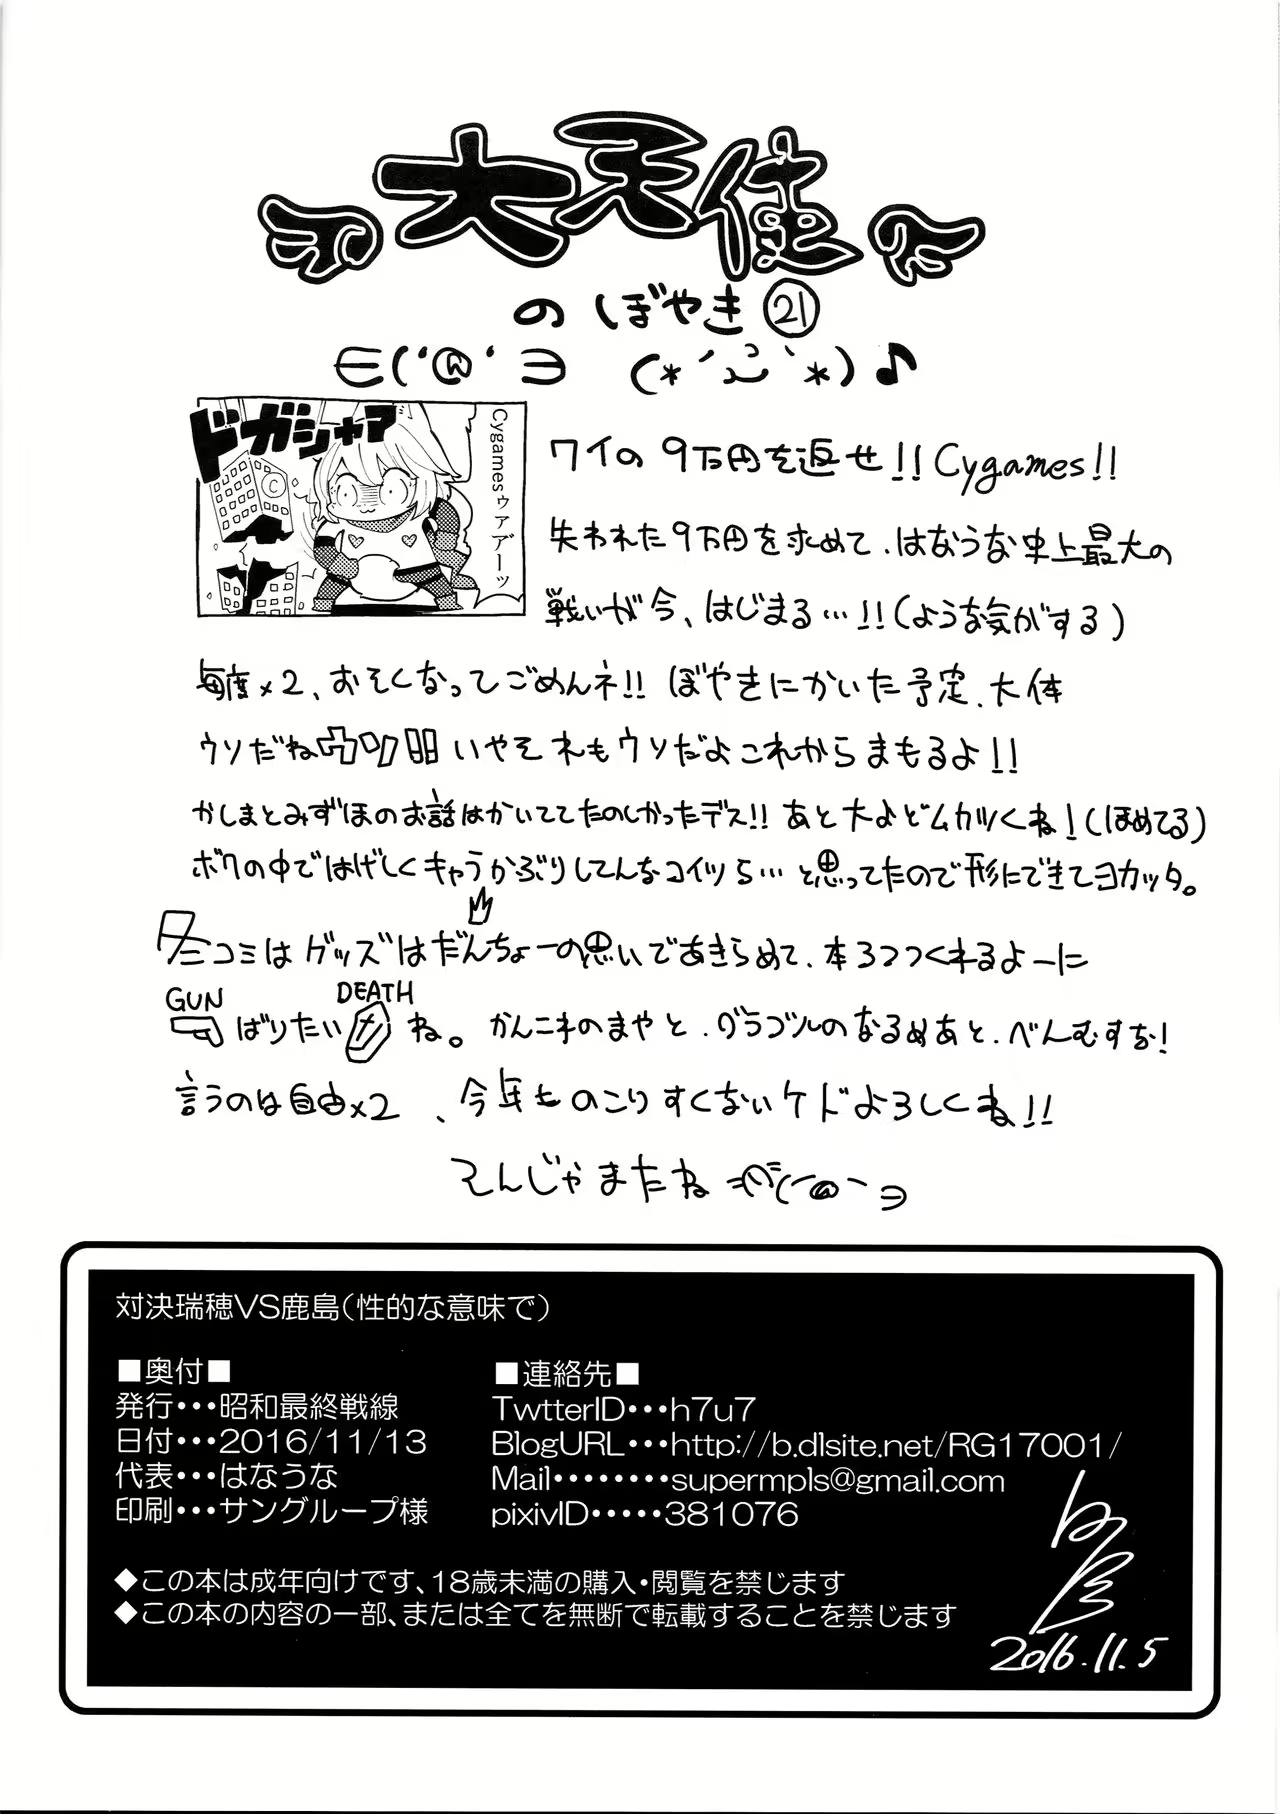 大天使
のぼやき㉑
∈(‘@‘∋ (*´ `*)♪
ドガシャア
Cygamesゥアア゛ーッ
ワイの9万円を返せ!!Cygames!!
失われた9万円を求めて、はなうな史上最大の
戦いが今、はじまる…!!(ような気がする)
毎度×2、おそくなってごめんネ!!ぼやきにかいた予定、大体
ウソだねウソ!!いやそれもウソだよこれからまもるよ!!
かしまとみずほのお話はかいててたのしかったデス!!あと大よどムカツくね!(ほめてる)
ボクの中ではげしくキャラかぶりしてんなコイツら…と思ってたので形にできてヨカッタ。
冬コミはグッズはだんちょーの思いであきらめて、本3つつくれるよーに
GUN DEATH
ばりたい ね。かんこれのまやと、グラブルのなるめあと、べんむすを!
言うのは自由×2、今年ものこりすくないケドよろしくね!!
そんじゃまたね
対決瑞穂VS鹿島(性的な意味で)
■奥付■
発行・・・昭和最終戦線
日付・・・2016/11/13
代表・・・はなうな
印刷・・・サングループ様
■連絡先■
TwtterID・・・h7u7
BlogURL・・・http://b.dlsite.net/RG17001/
Mail・・・・・・・・supermpls@gmail.com
pixivID・・・・・381076
◆この本は成年向けです、18歳未満の購入・閲覧を禁じます
◆この本の内容の一部、または全てを無断で転載することを禁じます
2016.11.5